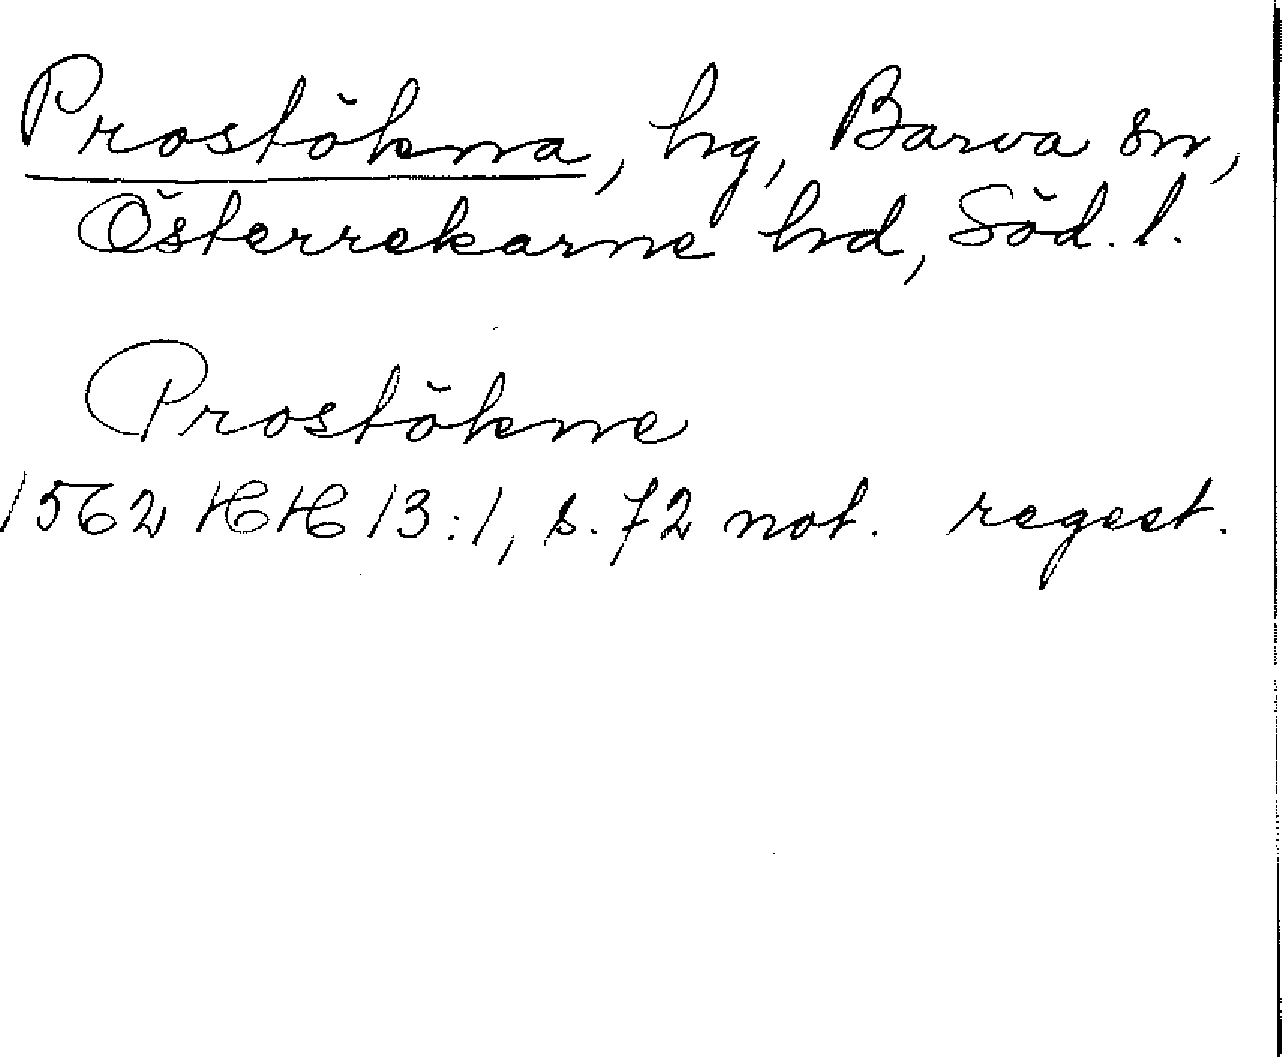 Prostökna, hg, Barva sn,
Österrekarne hd, Söd. l.
Prostökne
1562 HH 13:1, s. 72 not. regest.